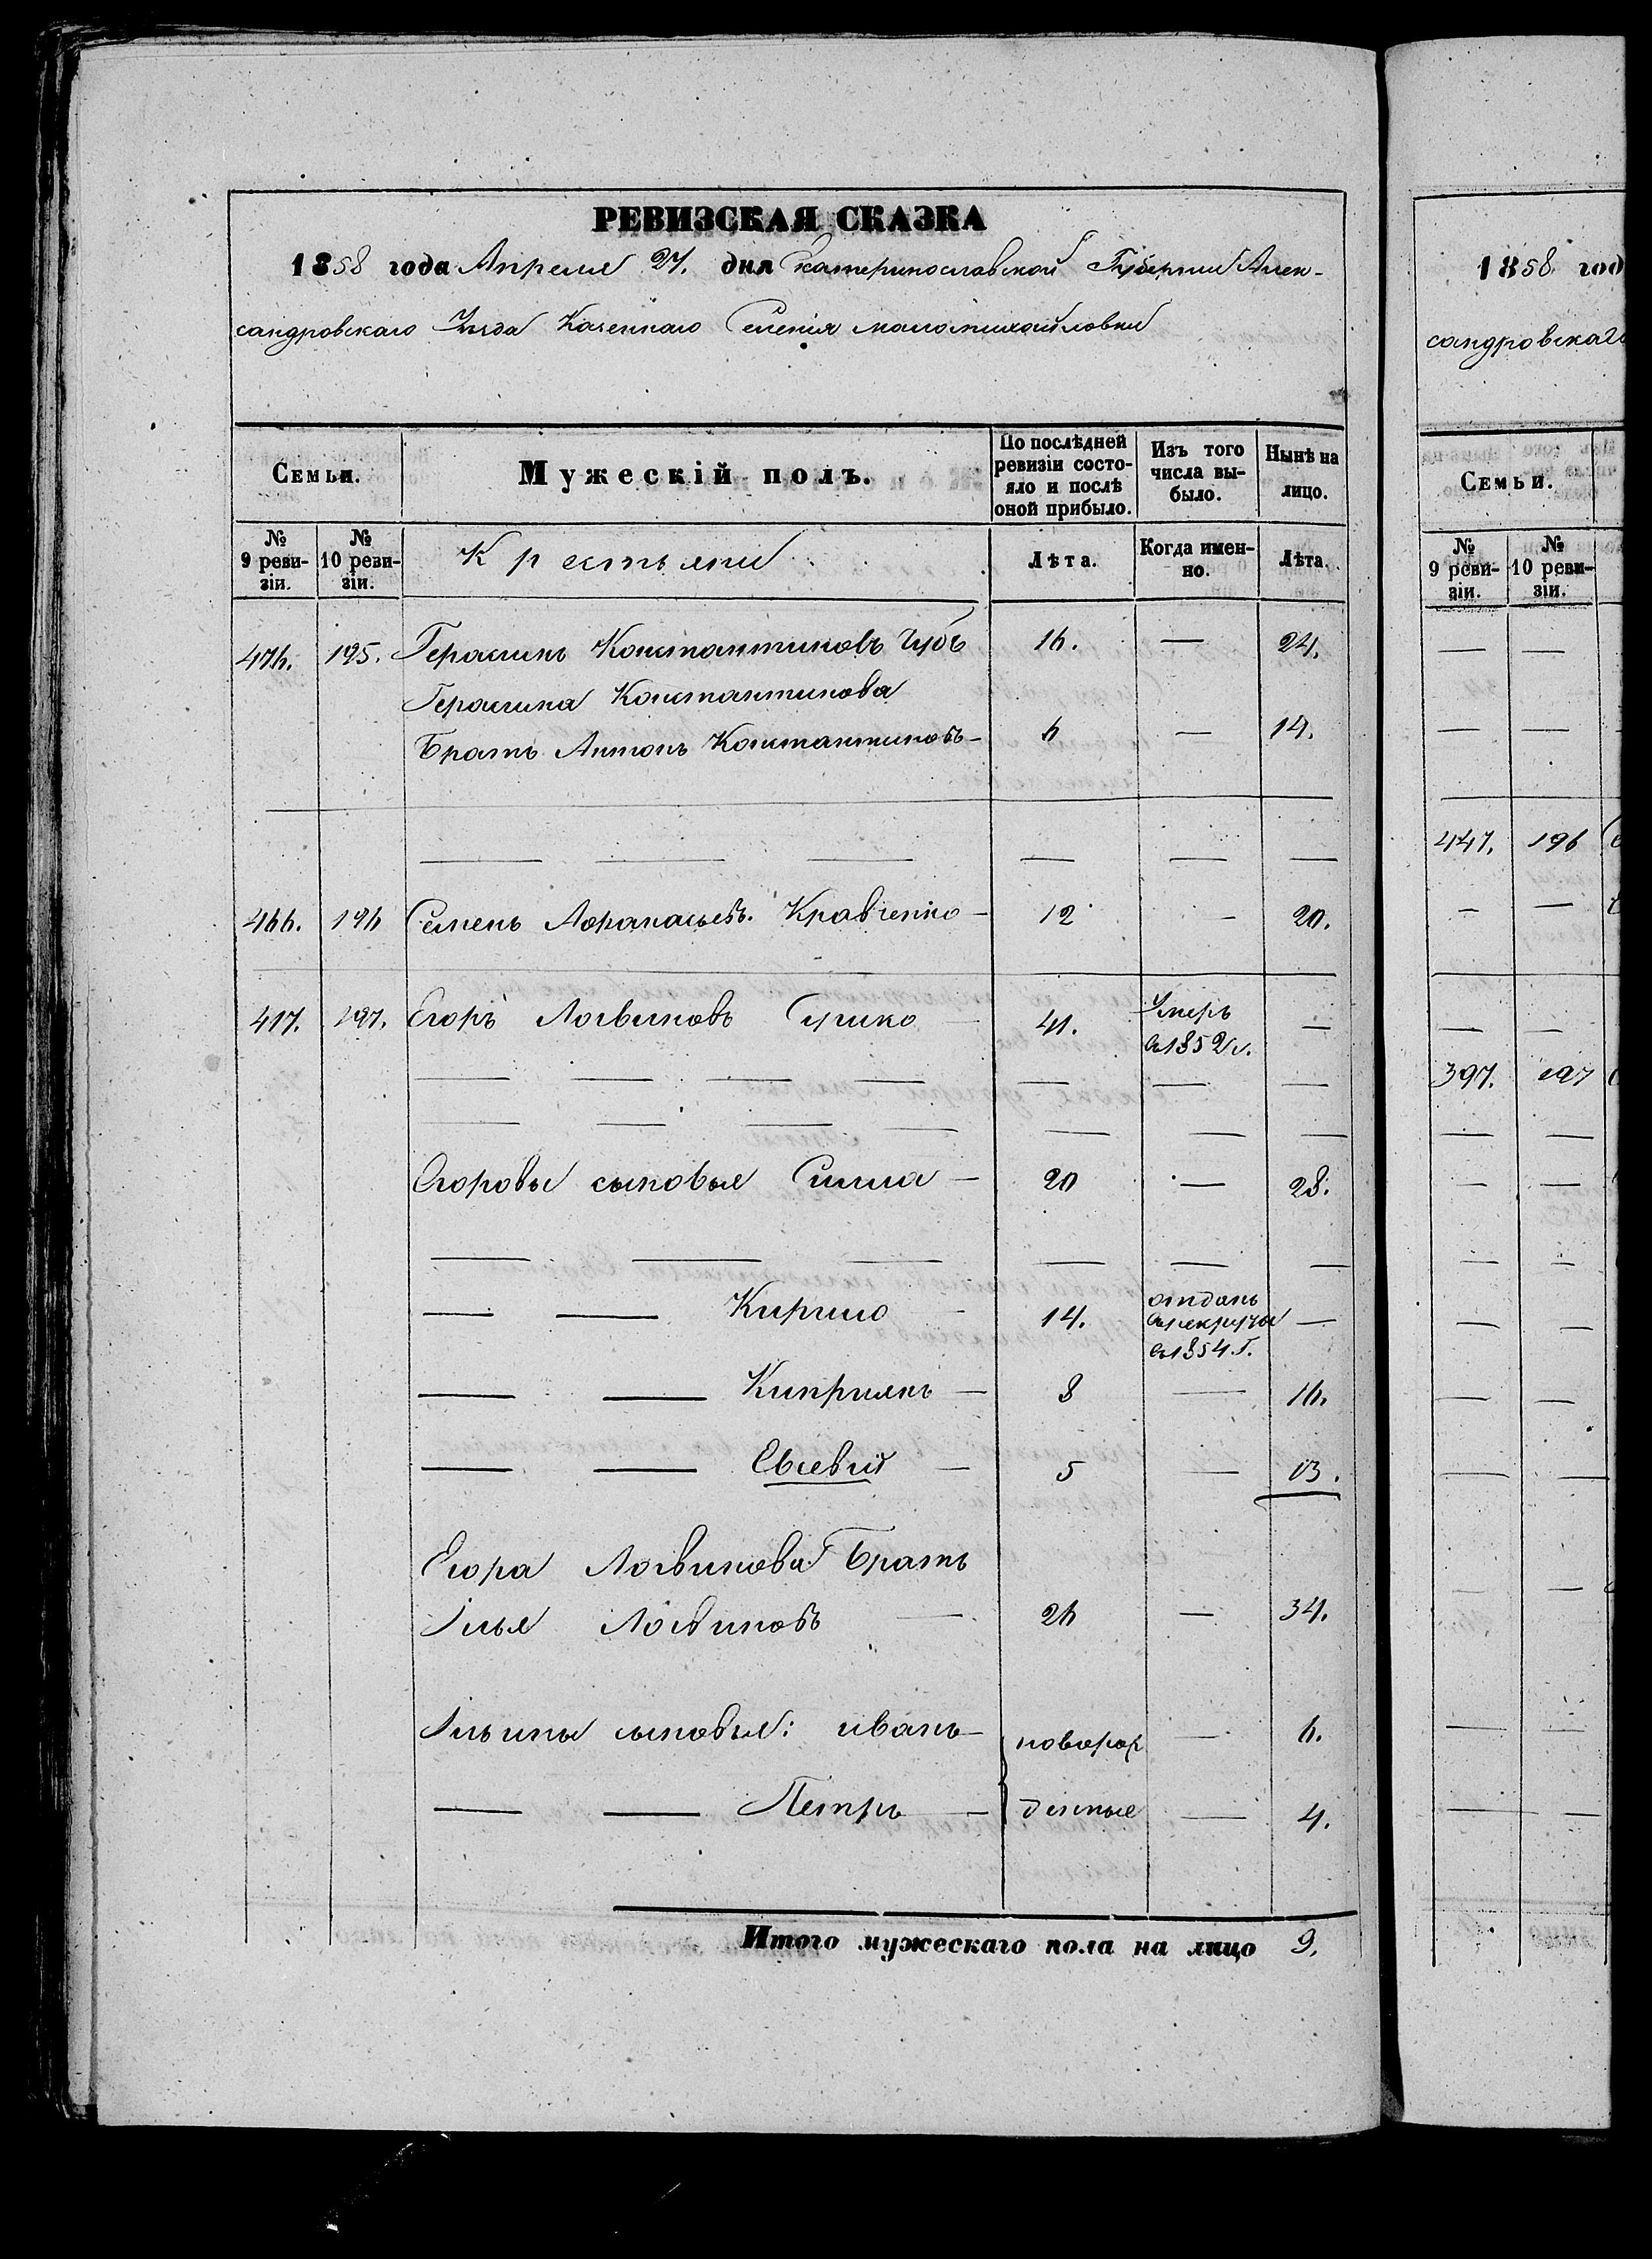 РЕВИЗСКАЯ СКАЗКА
1858 года Апреля 27. дня Екатеринославской Губернии Алек-
сандровскаго Уезда Казеннаго Селенія маломихайловки
Семьи.
Мужескій полъ.
По послѣдней ревизіи состо-яло и послѣ оной прибыло.
Изъ того числа вы-было.
Нынѣ на лицо.
№ 9 реви-зіи.
№ 10 реви-зіи.
Крестьяне
Лѣта.
Когда имен-но.
Лѣта.
476. 195. Герасимъ Константиновъ Чубъ 16. — 24.
Герасима Константинова
Братъ Антонъ Константиновъ — 6 — 14.
466. 196 Семенъ Афанасьевъ. Кравченко — 12 — 20.
417. 197. Егоръ Логвиновъ 41. Умеръ —
в 1852 г.
Егоровы сыновья Сила — 20 — 28.
— — Кирило — 14. отданъ
в рекруты —
в 1854. г.
— — Киприянъ — 8 — 16.
— — Евсевій — 5 — 13.
Егора Логвинова Братъ
Илья Логвиновъ — 26 — 34.
Ильины сыновья: иванъ — новорож — 6.
— — Петръ — денные — 4.
Итого мужескаго пола на лицо 9.
1858 год
сандровскаго
Семьи.
№ 9 реви-зіи.
№ 10 реви-зіи.
447. 196
397. 197